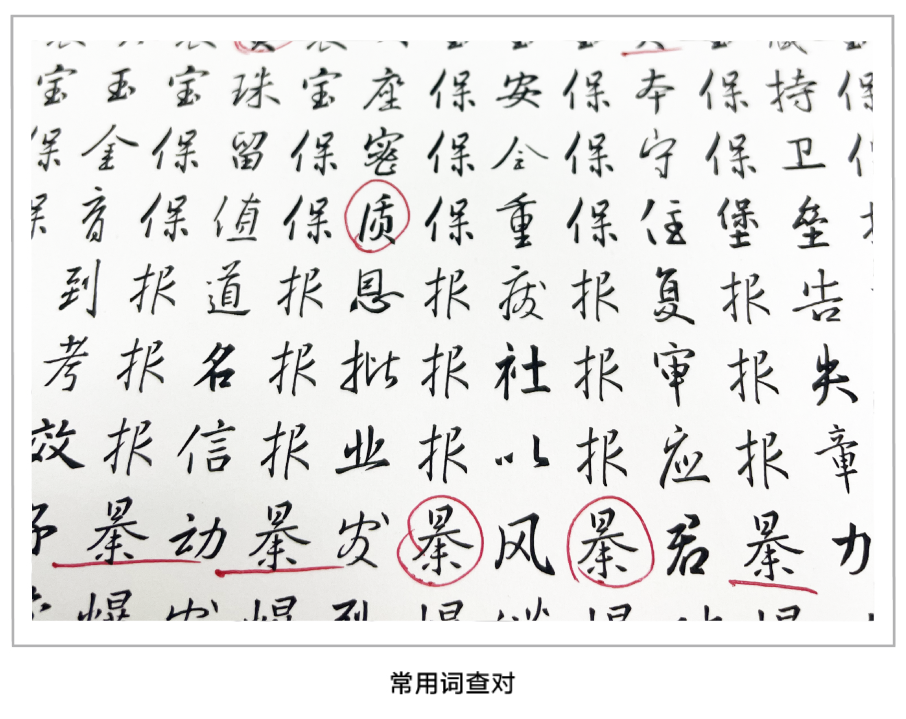 宝玉宝珠宝座保安保本保持保
保金保留保密保全保守保卫
音保值保质保重保住堡垒
到报道报恩报废报复报告
考报名报批报社报审报失
效报信报业报以报应报章
暴动暴发暴风暴君暴力
常用词查对